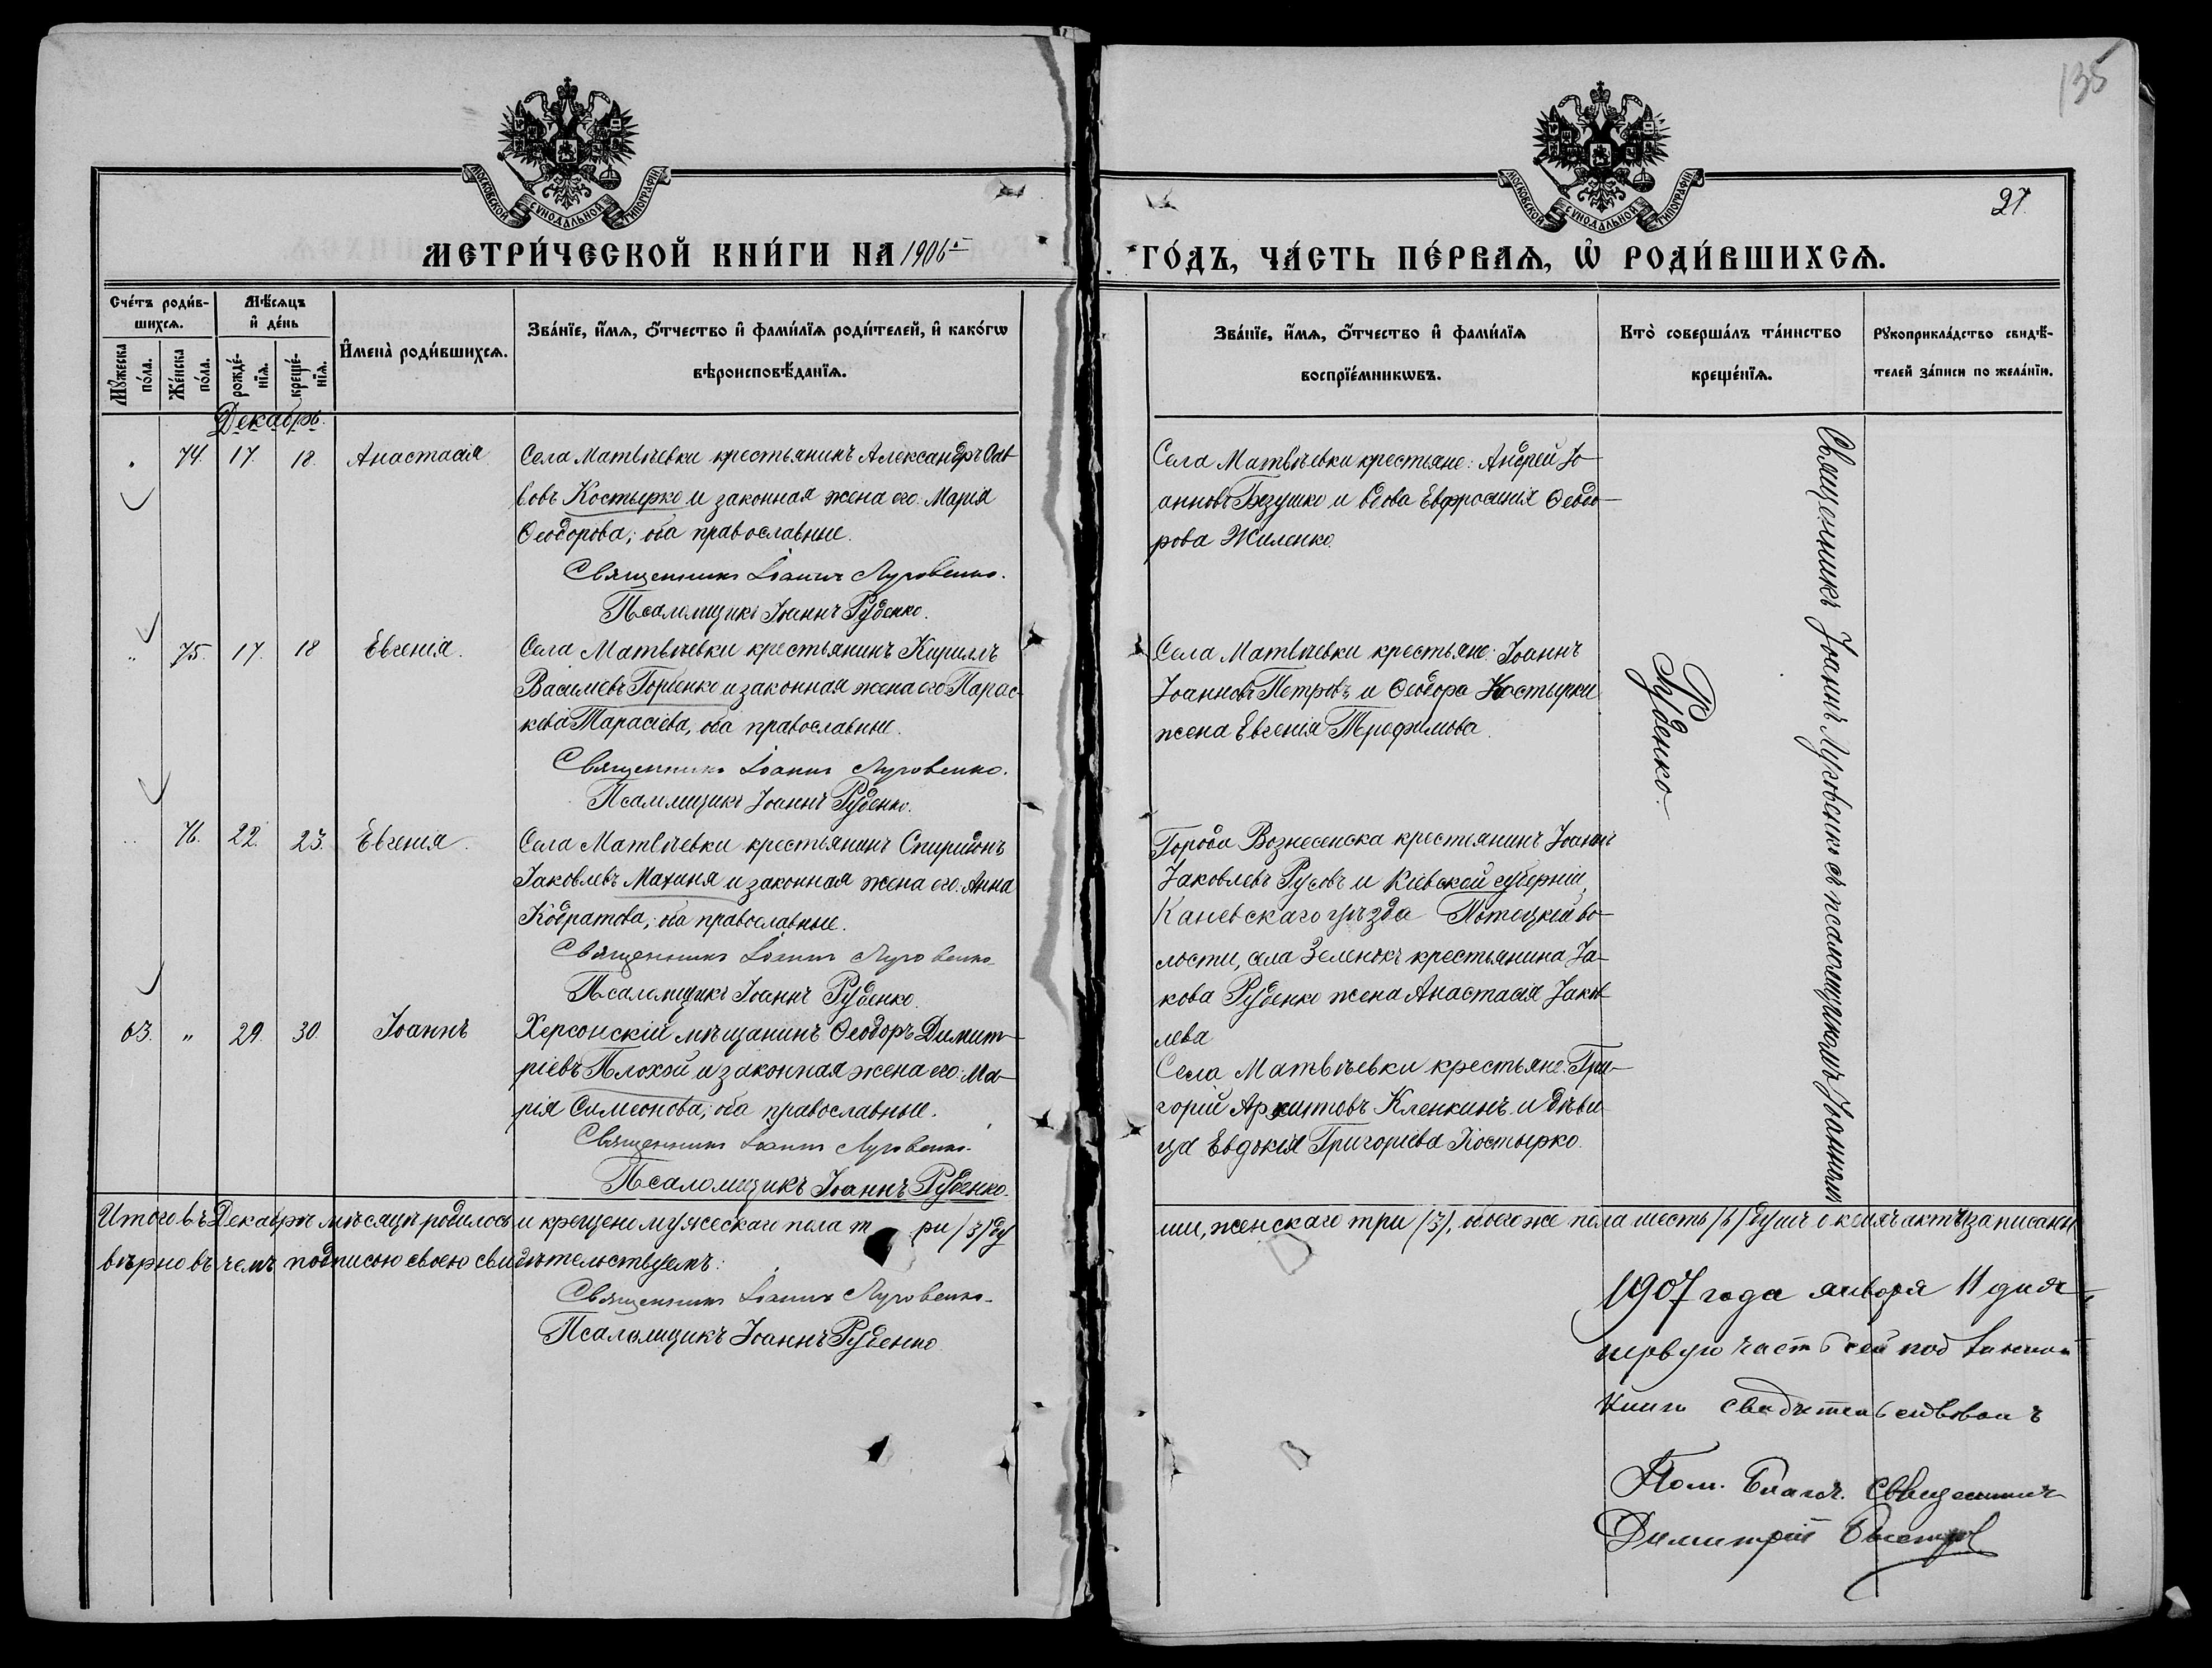 135
МОСКОВСКОЙ СѴНОДАЛЬНОЙ ТИПОГРАФІИ
МОСКОВСКОЙ СѴНОДАЛЬНОЙ ТИПОГРАФІИ
27.
МЕТРИ́ЧЕСКОЙ КНИ́ГИ НА 1906й
ГО́ДЪ, ЧА́СТЬ ПЕ́РВАѦ, Ѡ҆ РОДИ́ВШИХСѦ.
Сче́тъ роди́в-
шихсѧ.
Мꙋ́жеска
по́ла.
Же́нска
по́ла.
Мѣ́сѧцъ
и҆ де́нь
рожде́-
нїѧ.
креще́-
нїѧ.
И҆мена̀ роди́вшихсѧ.
Зва́нїе, и҆́мѧ, ѻ҆́тчество и҆ фами́лїѧ роди́телей, и҆ како́гѡ
вѣроисповѣ́данїѧ.
Зва́нїе, и҆́мѧ, ѻ҆́тчество и҆ фами́лїѧ
воспрїе́мникѡвъ.
Кто̀ соверша́лъ та́инство
креще́нїѧ.
Рꙋкоприкла́дство свидѣ́-
телей за́писи по жела́нїю.
Декабрь.
74. 17. 18. Анастасія
Села Матвѣевки крестьянинъ Александръ Сав-
вовъ Костырко и законная жена его: Марія
Ѳеодорова; оба православные.
Священникъ Іоаннъ Луговенко.
Псаломщикъ Іоаннъ Руденко.
Села Матвѣевки крестьяне: Андрей Іо-
анновъ Безушко и вдова Евфросинія Ѳеодо-
рова Жиленко.
„ 75. 17. 18 Евгенія.
Села Матвѣевки крестьянинъ Кириллъ
Васильевъ Горбенко и законная жена его Парас-
кева Тарасіева, оба православные.
Священникъ Іоаннъ Луговенко.
Псаломщикъ Іоаннъ Руденко.
Села Матвѣевки крестьяне: Іоаннъ
Іоанновъ Петровъ и Ѳеодора Костырки
жена Евгенія Трофимова.
„ 76. 22. 23. Евгенія.
Села Матвѣевки крестьянинъ Спиридонъ
Іаковлевъ Махиня и законная жена его: Анна
Кодратова; оба православные.
Священникъ Іоаннъ Луговенко
Псаломщикъ Іоаннъ Руденко.
Города Вознесенска крестьянинъ Іоаннъ
Іаковлевъ Русовъ и Кіевской губерніи,
Каневскаго уѣзда Потоцкой во-
лости, села Зеленокъ крестьянина Іа-
кова Руденко жена Анастасія Іаков-
лева
63. „ 29. 30. Іоаннъ
Херсонскій мѣщанинъ Ѳеодоръ Димит-
ріевъ Плохой и законная жена его: Ма-
рія Симеонова; оба православные.
Священникъ Іоаннъ Луговенко.
Псаломщикъ Іоаннъ Руденко.
Села Матвѣевки крестьяне: Гри-
горій Кленкинъ и дѣви-
ца Евдокія Григоріева Костырко.
Священникъ Іоаннъ Луговенко съ псаломщикомъ Іоанномъ
Руденко.
Итого въ Декабрѣ мѣсяцѣ родилось и крещено мужескаго пола три /3/ ду
ши, женскаго три /3/, обоего же пола шесть /6/ душъ о коихъ актъ записанъ
вѣрно въ чемъ подписою своею свидѣтельствуемъ:
Священникъ Іоаннъ Луговенко.
Псаломщикъ Іоаннъ Руденко
1907 года января 11 дня
первую часть сей
книги свидѣтельствовалъ
Пом. Благоч. Священникъ
Димитрій